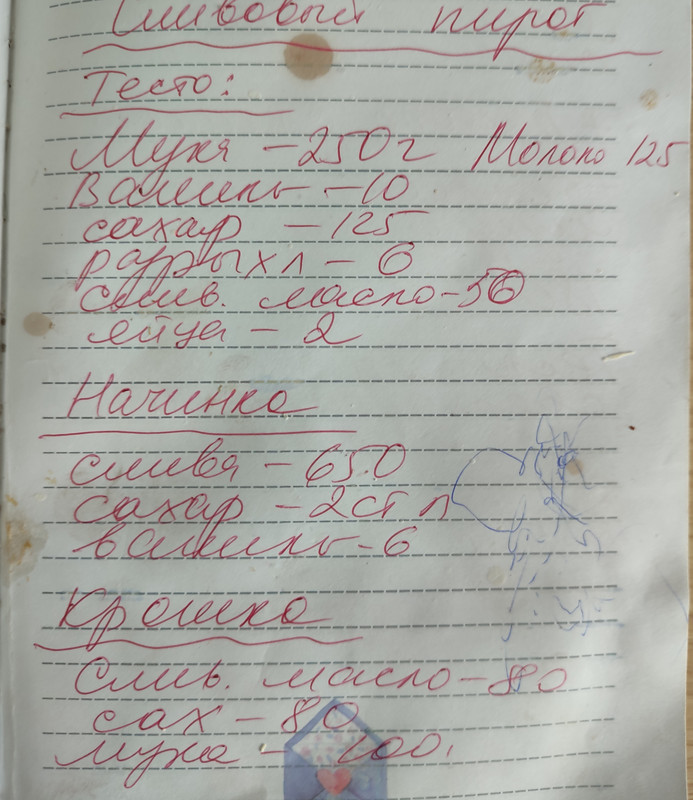 Сливовый пирог
Тесто:
Мука - 250г Молоко 125
Ваниль - 10
сахар - 125
разрыхл - 6
слив. масло - 50
яйца - 2
Начинка
слива - 650
сахар - 2 ст л
ваниль - 6
Крошка
Слив. масло - 80
сах - 80
мука - 200.